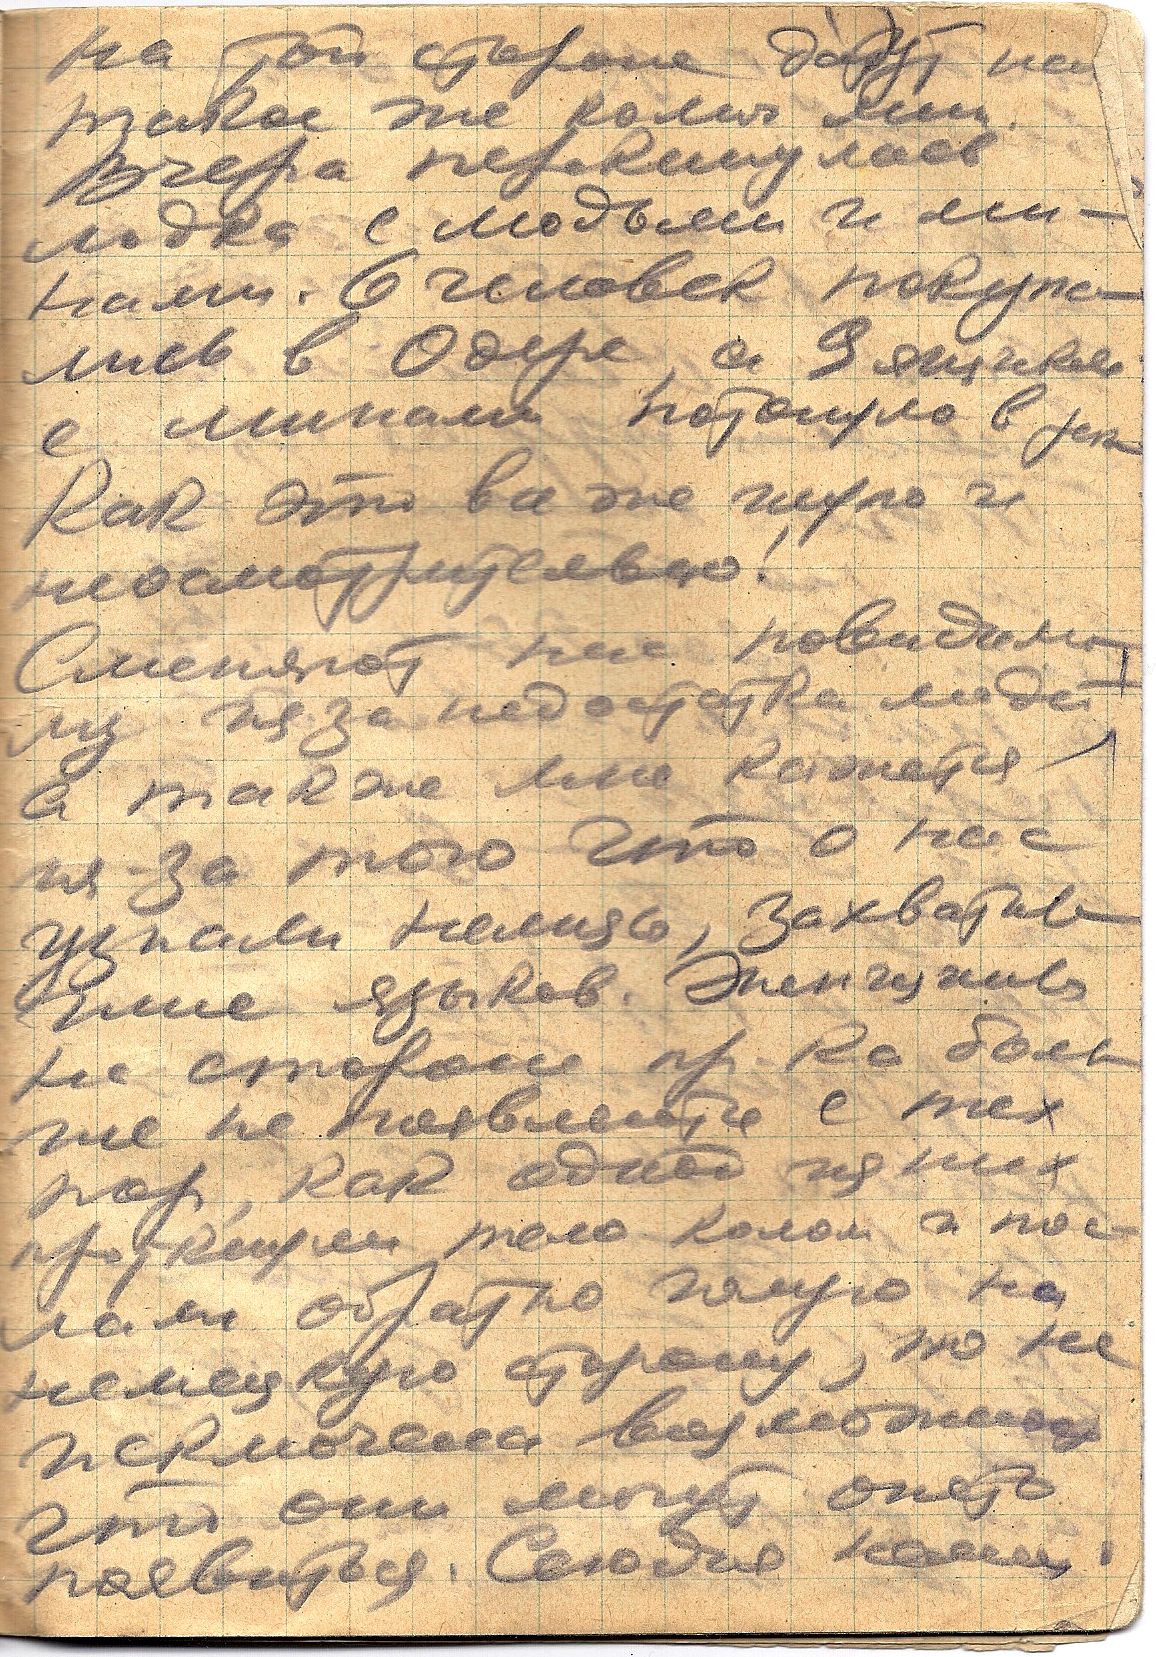 на той стороне дадут нам
такое же колич мин.
Вчера перекинулась
лодка с людьми и ми-
нами. 6 человек покупа-
лись в Одере, а 9 ящиков
с минами потонуло в
Как это все же глупо и
неосмотрительно!
Сменяют нас повидимо-
му из-за недостатка людей
а также мне кажется
из-за того что о нас
узнали немцы, захватив-
шие языков. Женщины
на стороне пр-ка боль-
ше не появляются с тех
пор, как одной из них
проткнули тело колом и пос-
лали обратно голую на
немецкую сторону, но не
исключена возможность
что они могут опять
появиться. Сегодня наши